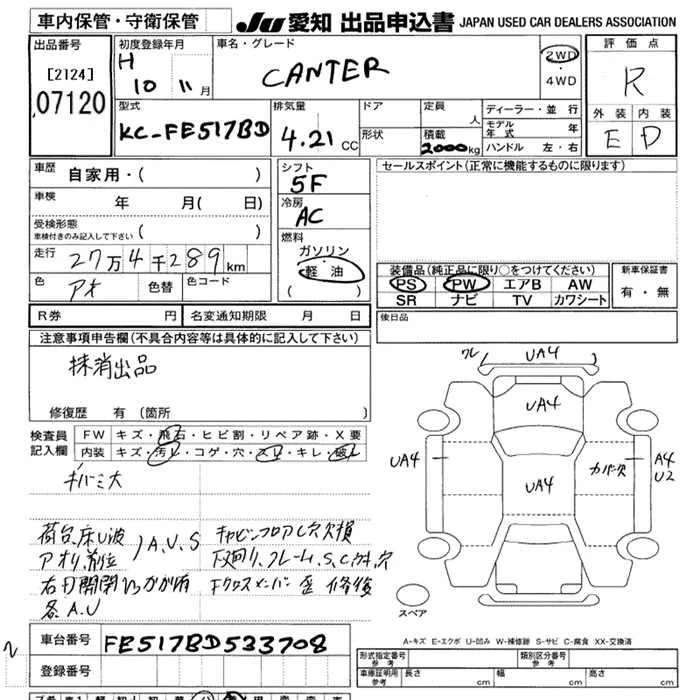 車内保管・守衛保管
JU 愛知 出品申込書 JAPAN USED CAR DEALERS ASSOCIATION
出品番号
[2124]
07120
初度登録年月
H 10 11月
車名・グレード
CANTER
2WD
・
4WD
評価点
R
外装 内装
E D
型式
KC-FE517BD
排気量
4.21 CC
ドア
形状
定員 人
積載 2000kg
ディーラー・並行
モデル年式 年
ハンドル 左・右
車歴 自家用・( )
車検 年 月( 日)
受検形態
車検付きのみ記入して下さい ( )
走行 27万4千289km
色 アオ 色替 色コード
シフト
5F
冷房
AC
燃料
ガソリン
・
軽油
( )
セールスポイント(正常に機能するものに限ります)
装備品(純正品に限り○をつけてください)
PS PW エアB AW
SR ナビ TV カワシート
新車保証書
有・無
R券 円 名変通知期限 月 日
後日品
注意事項申告欄(不具合内容等は具体的に記入して下さい)
抹消出品
修復歴 有(箇所 )
検査員
記入欄
FW キズ・飛石・ヒビ割・リペア跡・X要
内装 キズ・汚レ・コゲ・穴・スレ・キレ・破レ
荷台、床U波
アオリ、前位
A、V、S
各A、U
キャビンフロアし穴欠損
下廻り、フレーム、S、C、
下クロスメンバー歪 修後
UA4
UA4
UA4
UA4
カバー欠
A4
U2
スペア
A-キズ E-エクボ U-凹み W-補修跡 S-サビ C-腐食 XX-交換済
車台番号 FE517BD533708
登録番号
形式指定番号
参考
類別区分番号
参考
車庫証明用
参考
長さ cm 幅 cm 高さ cm